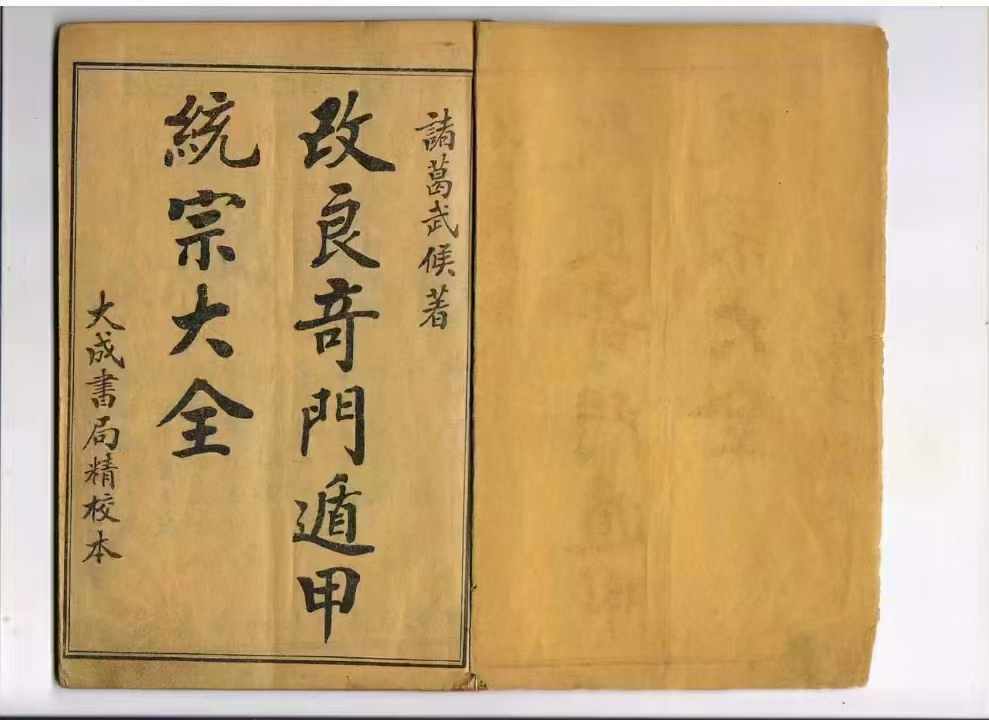 諸葛武候著
改良竒門遁甲
統宗大全
大成書局精校本